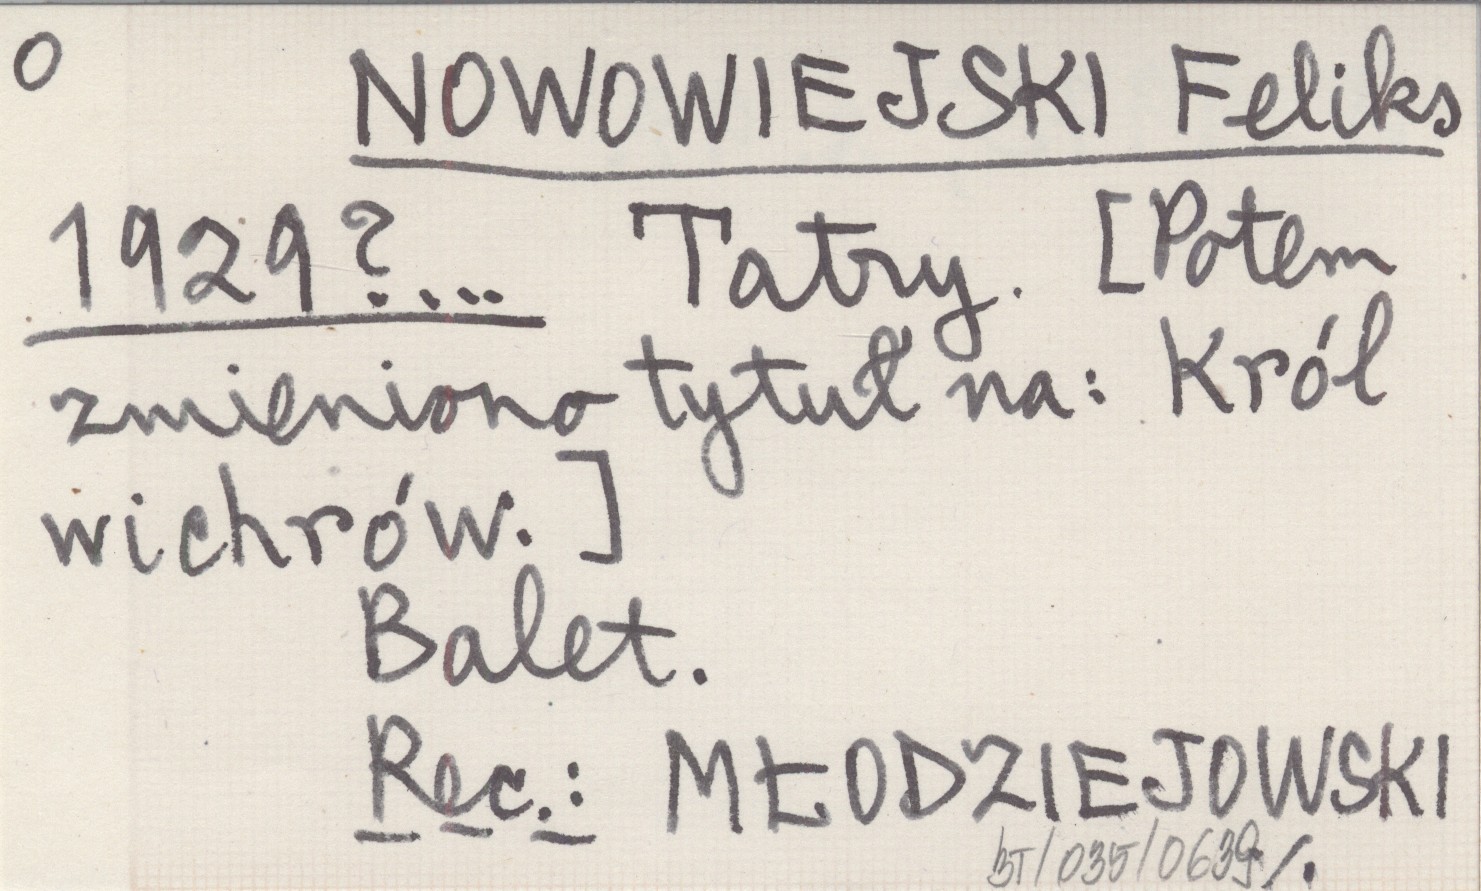 O NOWOWIEJSKI Feliks
1929?... Tatry. [Potem
zmieniono tytuł na: Król
wichrów.]
Balet.
Rec.: MŁODZIEJOWSKI
BT/035/0639/.